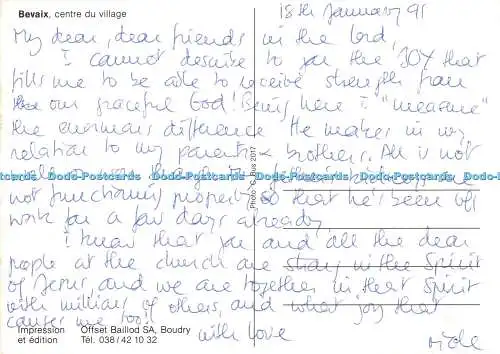 Bevaix, centre du village
18th January 91
My dear, dear friends in the Lord,
I cannot describe to you the JOY that
fills me to be able to receive strength from
our graceful God! Being here I "measure"
the enormous difference He makes in my
relation to my parents & brothers. All is not
Dodo-Postcards Dodo-Postcards Dodo-Postcards Dodo-Postcards Dodo-Postcards
not functioning properly so that he's been off
work for a few days already.
I know that you and all the dear
people at the church are strong in the Spirit
of Jesus, and we are together in that Spirit
with millions of others, and what joy that
causes me too!
with love
Impression et édition
Offset Baillod SA, Boudry
Tél: 038/42 10 32